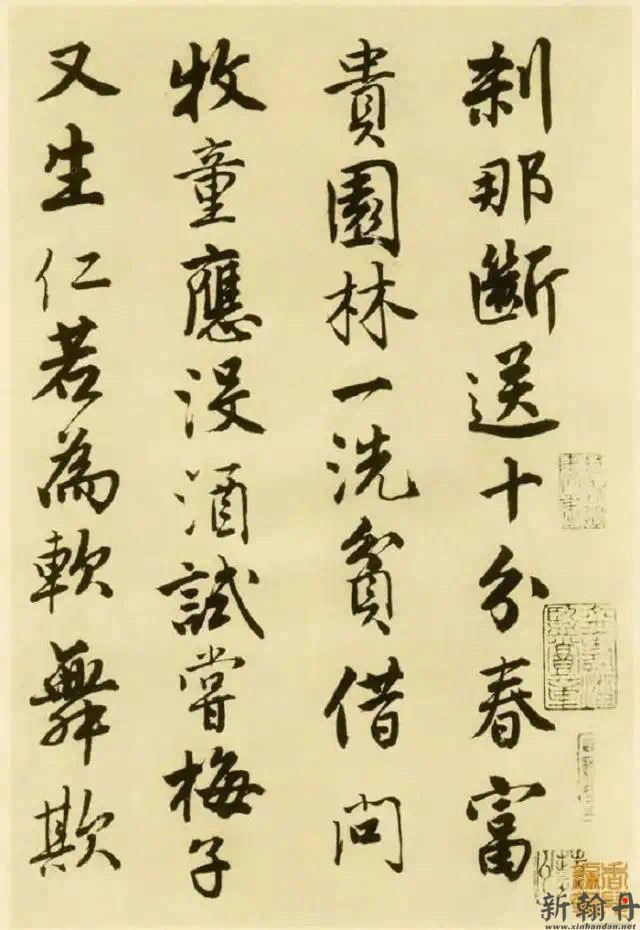 刹那斷送十分春富
貴園林一洗貧借問
牧童應没酒試嘗梅子
又生仁若為軟舞欺
新翰丹
www.xinhandan.net